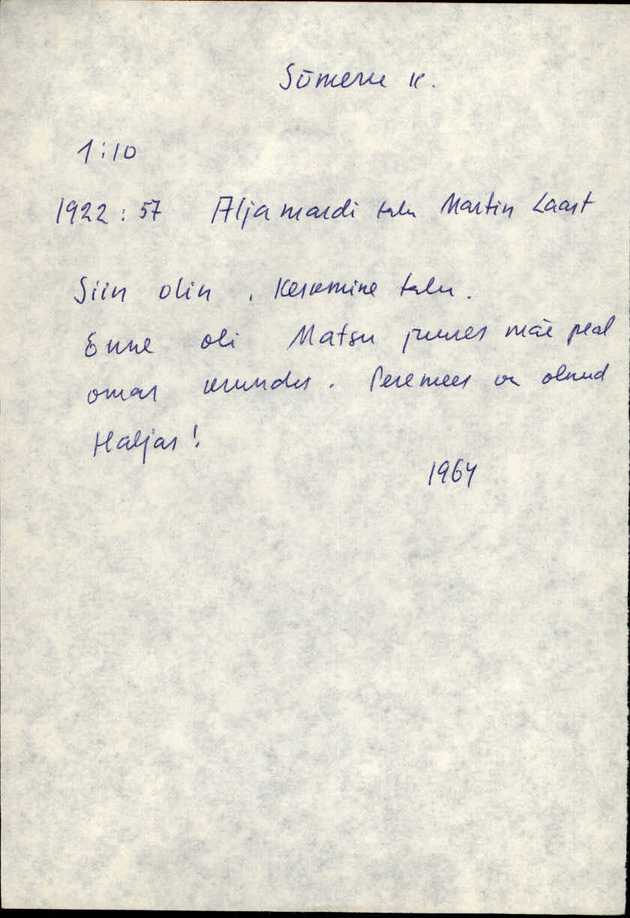 Sõmeru k.
1:10
1922:57 Aljamardi talu Martin Laast
Siin olin. Keskmine talu.
Enne oli Matsu juures mäe peal
omas krundis. Peremees on olnud
Haljas!
1964